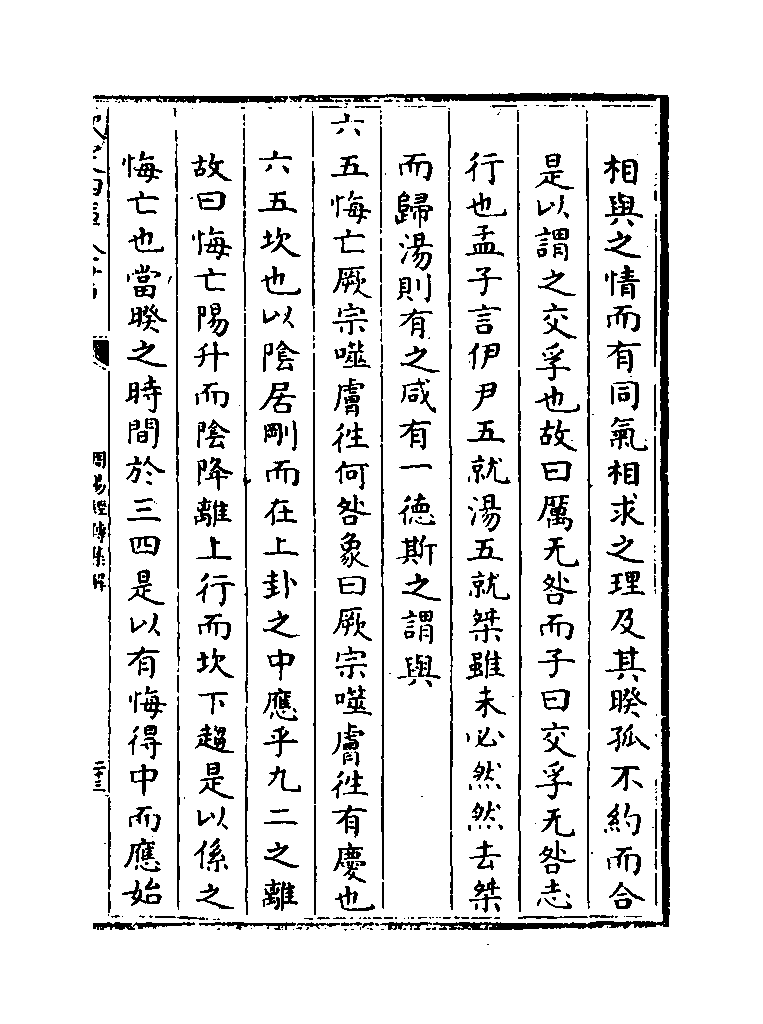 相與之情而有同氣相求之理及其暌孤不約而合
是以謂之交孚也故曰厲无咎而子曰交孚无咎志
行也孟子言伊尹五就湯五就桀雖未必然然去桀
而歸湯則有之咸有一德斯之謂與
六五悔亡厥宗噬膚徃何咎象曰厥宗噬膚徃有慶也
六五坎也以陰居剛而在上卦之中應乎九二之離
故曰悔亡陽升而陰降離上行而坎下趨是以係之
悔亡也當暌之時間於三四是以有悔得中而應始
周易經傳集解
二十三